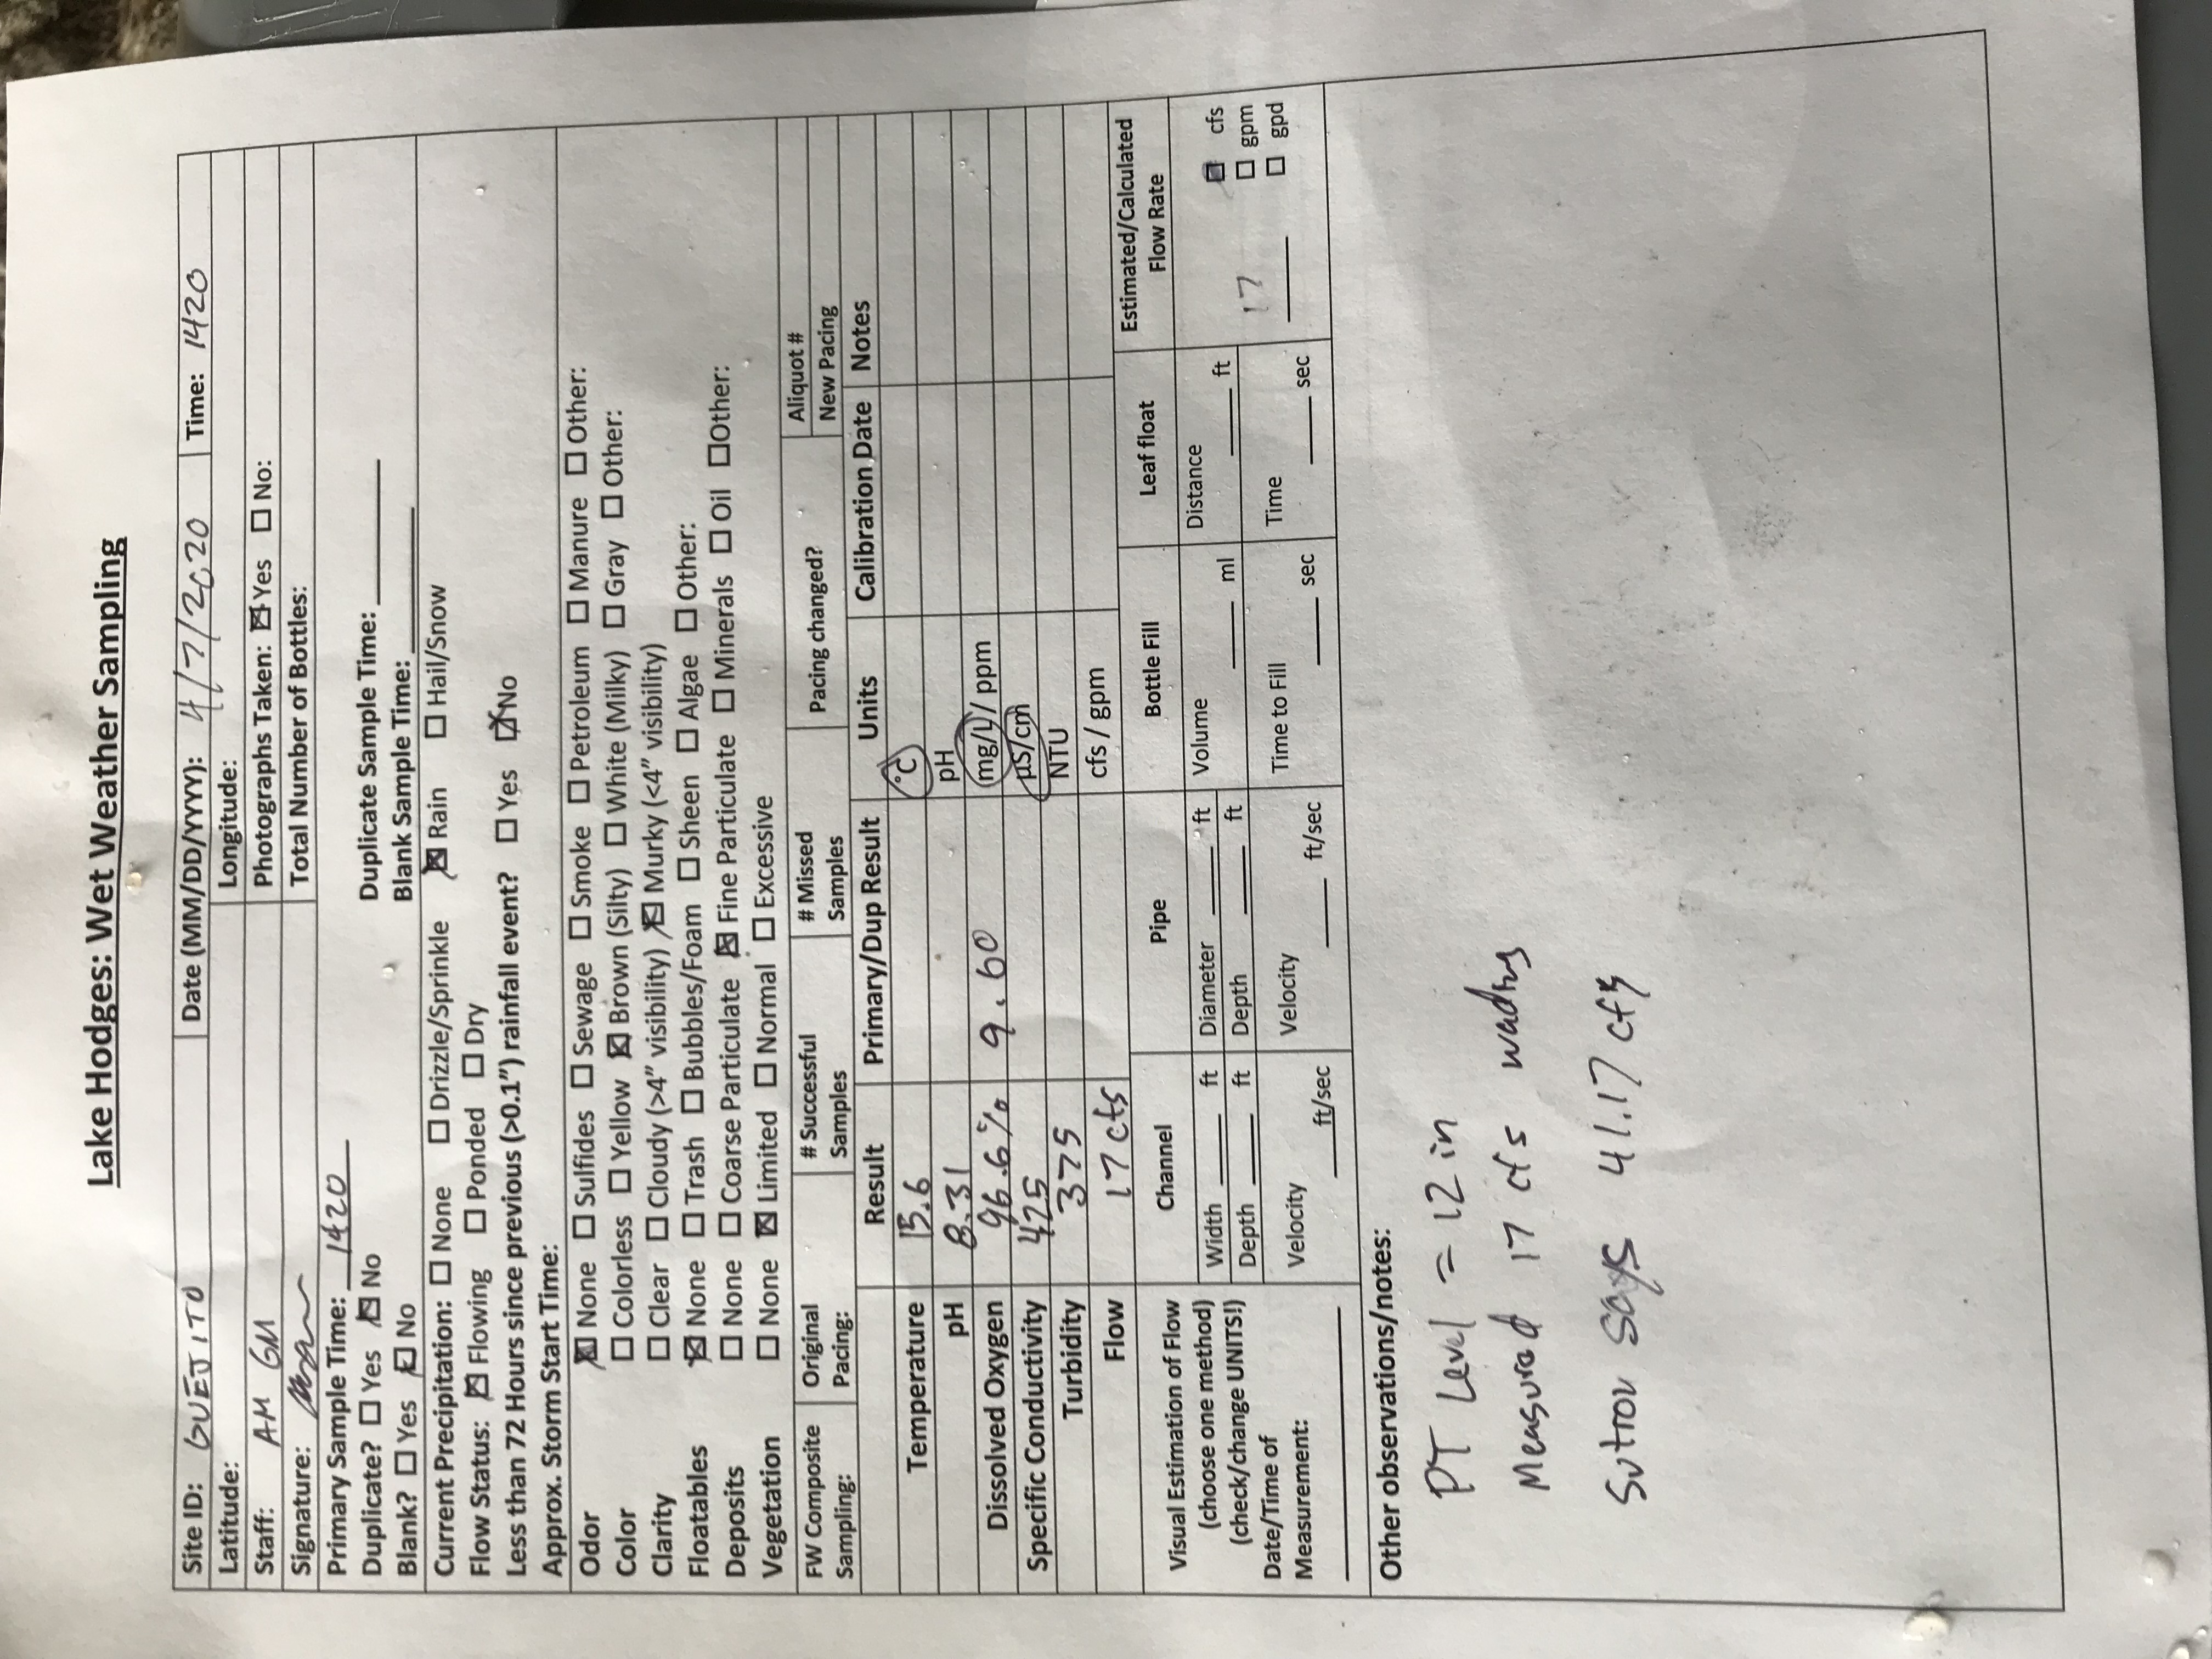 Lake Hodges: Wet Weather Sampling
Site ID: GUEJITO Date (MM/DD/YYYY): 4/7/2020 Time: 1420
Latitude: Longitude:
Staff: AM GM Photographs Taken: ☒ Yes ☐ No:
Signature: Total Number of Bottles:
Primary Sample Time: 1420
Duplicate? ☐ Yes ☒ No Duplicate Sample Time: ________
Blank? ☐ Yes ☒ No Blank Sample Time: ________
Current Precipitation: ☐ None ☐ Drizzle/Sprinkle ☒ Rain ☐ Hail/Snow
Flow Status: ☒ Flowing ☐ Ponded ☐ Dry
Less than 72 Hours since previous (>0.1") rainfall event? ☐ Yes ☒ No
Approx. Storm Start Time:
Odor ☒ None ☐ Sulfides ☐ Sewage ☐ Smoke ☐ Petroleum ☐ Manure ☐ Other:
Color ☐ Colorless ☐ Yellow ☒ Brown (Silty) ☐ White (Milky) ☐ Gray ☐ Other:
Clarity ☐ Clear ☐ Cloudy (>4" visibility) ☒ Murky (<4" visibility)
Floatables ☒ None ☐ Trash ☐ Bubbles/Foam ☐ Sheen ☐ Algae ☐ Other:
Deposits ☐ None ☐ Coarse Particulate ☒ Fine Particulate ☐ Minerals ☐ Oil ☐ Other:
Vegetation ☐ None ☒ Limited ☐ Normal ☐ Excessive
FW Composite Sampling: Original Pacing: # Successful Samples # Missed Samples Pacing changed? Aliquot #
New Pacing
Result Primary/Dup Result Units Calibration Date Notes
Temperature 15.6 °C
pH 8.31 pH
Dissolved Oxygen 96.6% 9.60 mg/L / ppm
Specific Conductivity 425 µS/cm
Turbidity 375 NTU
Flow 17 cfs cfs / gpm
Visual Estimation of Flow
(choose one method)
(check/change UNITS!)
Date/Time of
Measurement:
Channel
Width ____ ft
Depth ____ ft
Velocity
____ ft/sec
Pipe
Diameter ____ ft
Depth ____ ft
Velocity
____ ft/sec
Bottle Fill
Volume
____ ml
Time to Fill
____ sec
Leaf float
Distance
____ ft
Time
____ sec
Estimated/Calculated
Flow Rate
17
☒ cfs
☐ gpm
☐ gpd
Other observations/notes:
PT Level = 12 in
Measured 17 cfs wading
Sutron says 41.17 cfs